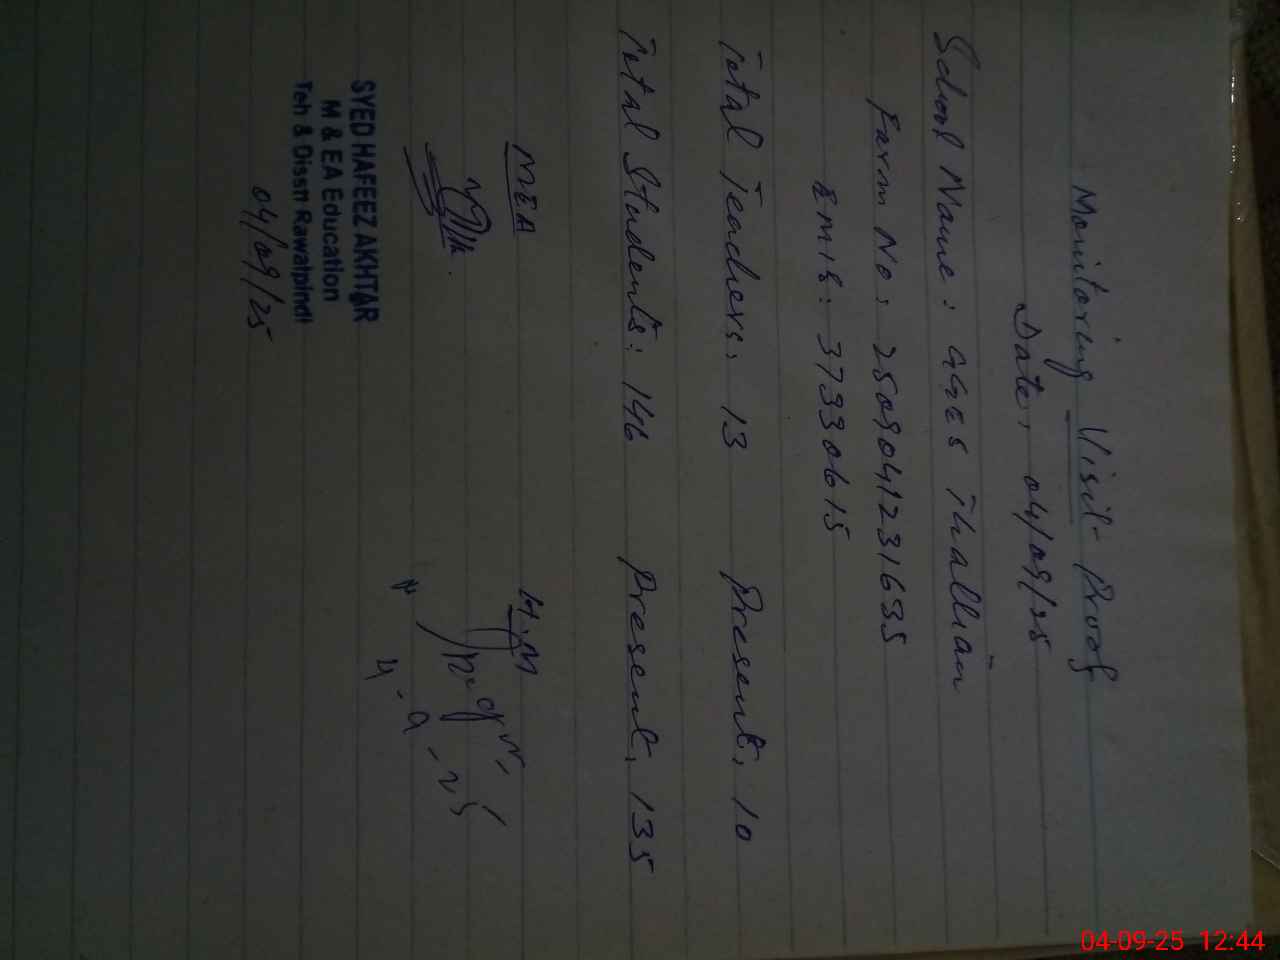 Monitoring Visit Proof
Date: 04/09/25
School Name: GGES Thallian
Farm No: 2509041231635
EMIS: 37330615
Total Teachers: 13 Present: 10
Total Students: 146 Present: 135
MEA H.M
4-9-25
SYED HAFEEZ AKHTAR
M & EA Education
Teh & Disstt Rawalpindi
04/09/25
04-09-25 12:44